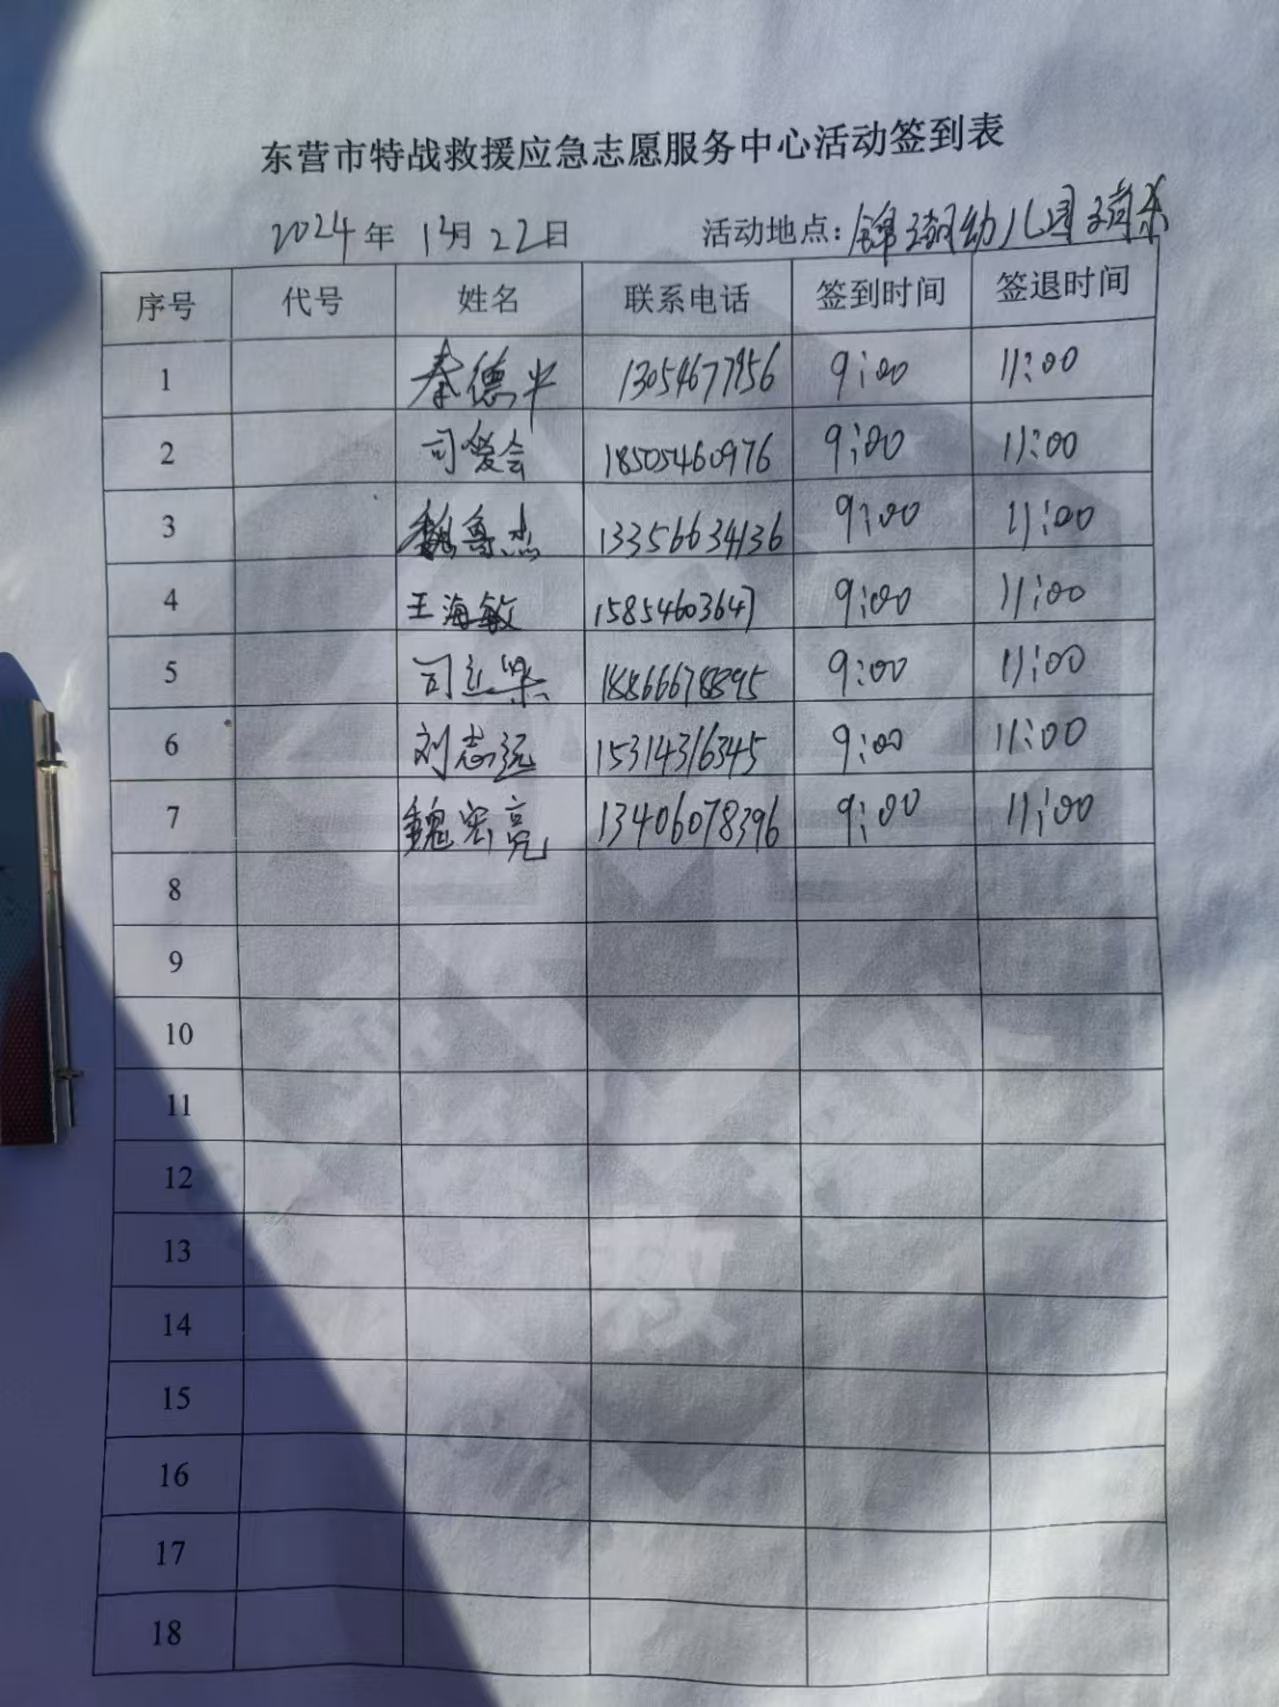 东营市特战救援应急志愿服务中心活动签到表
2024年12月22日 活动地点：锦湖幼儿园
序号 代号 姓名 联系电话 签到时间 签退时间
1 秦德平 13054677956 9:00 11:00
2 司爱会 18505460976 9:00 11:00
3 魏鲁杰 13356634136 9:00 11:00
4 王海敏 15854603647 9:00 11:00
5 司立 18866678895 9:00 11:00
6 刘志远 15314316345 9:00 11:00
7 魏宏亮 13406078396 9:00 11:00
8
9
10
11
12
13
14
15
16
17
18
救